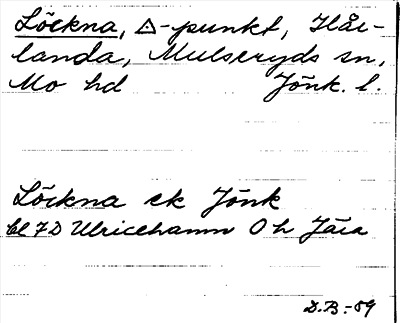 Löckna, △-punkt, Håls-
landa, Mulseryds sn,
Mo hd Jönk. l.
Löckna ek Jönk
bl 7D Ulricehamn O h Jära
D.B.-59